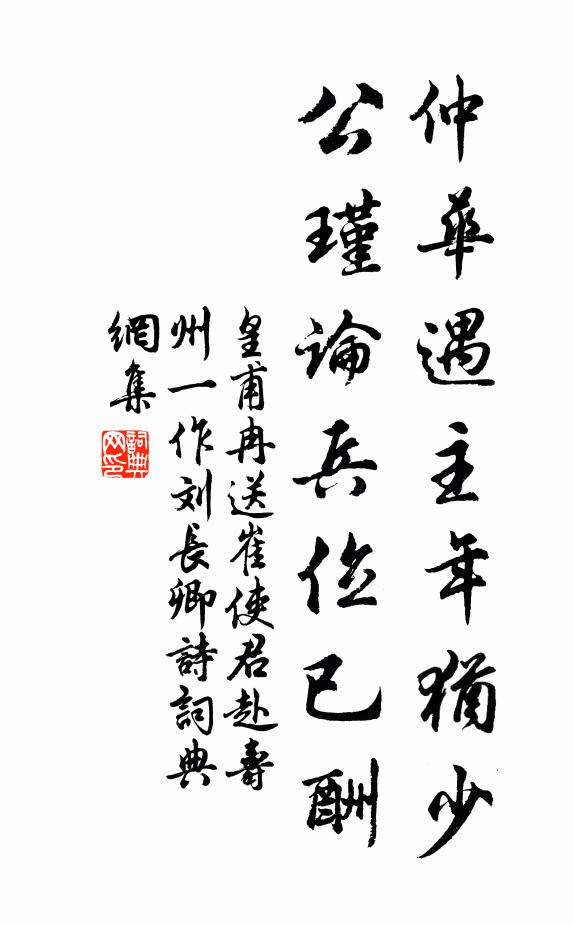 仲華遇主年猶少
公瑾論兵位已酬
皇甫冉送崔使君赴壽
州一作刘長卿詩詞典
網集
詞典網印